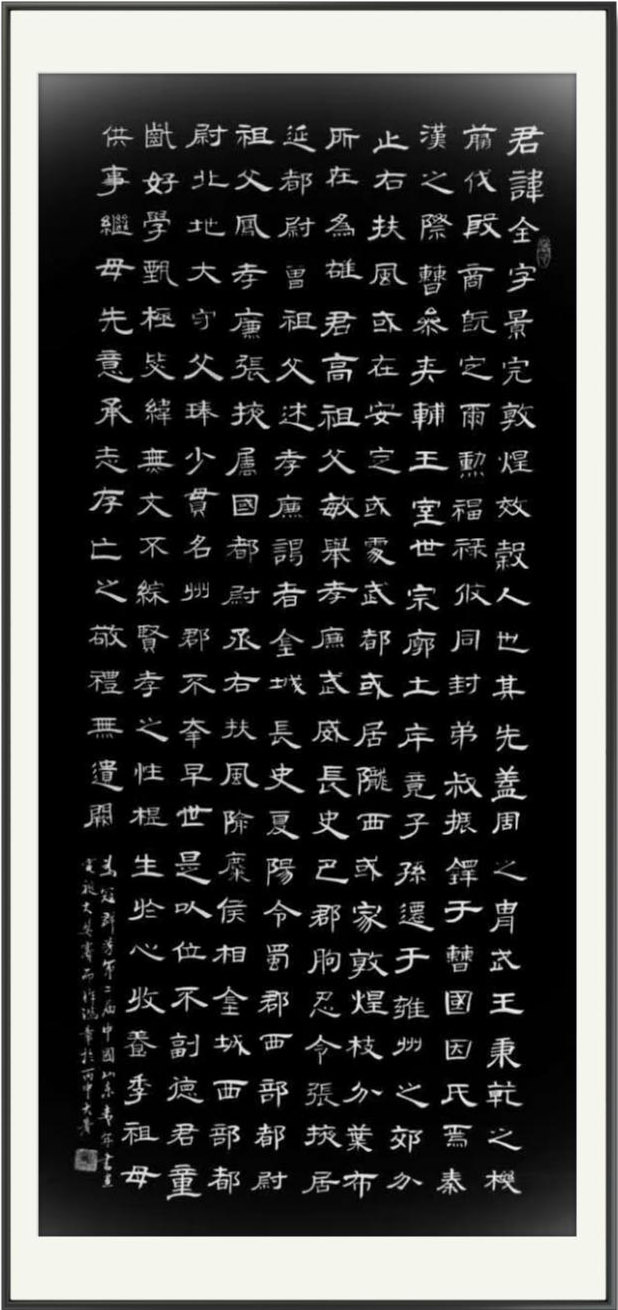 君諱全字景完敦煌效穀人也其先蓋周之胄武王秉乾之機
翦伐殷商既定爾勳福祿攸同封弟叔振鐸于曹國因氏焉秦
漢之際曹參夾輔王室世宗廓土斥竟子孫遷于雍州之郊分
止右扶風或在安定或處武都或居隴西或家敦煌枝分葉布
所在為雄君高祖父敏舉孝廉武威長史巴郡朐忍令張掖居
延都尉曾祖父述孝廉謁者金城長史夏陽令蜀郡西部都尉
祖父鳳孝廉張掖屬國都尉丞右扶風隃麋侯相金城西部都
尉北地大守父琫少貫名州郡不幸早世是以位不副德君童
齔好學甄極毖緯無文不綜賢孝之性根生於心收養季祖母
供事繼母先意承志存亡之敬禮無遺闕
冠群芳第二屆中國山东青年書畫
於丙申